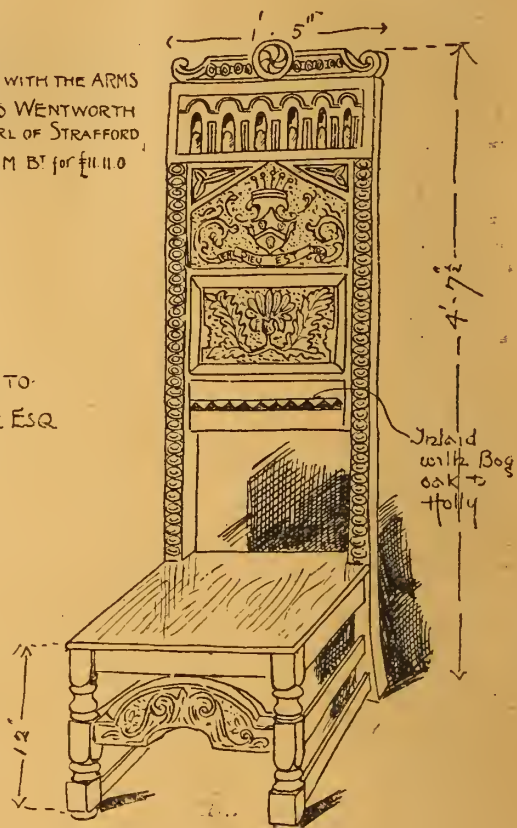 1'. 5"
WITH THE ARMS
WENTWORTH
RL OF STRAFFORD
M Bᵀ for £11.11.0
EN DIEU EST
4'. 7½"
TO.
ESQ
Inlaid
with Bog
oak &
Holly
12"